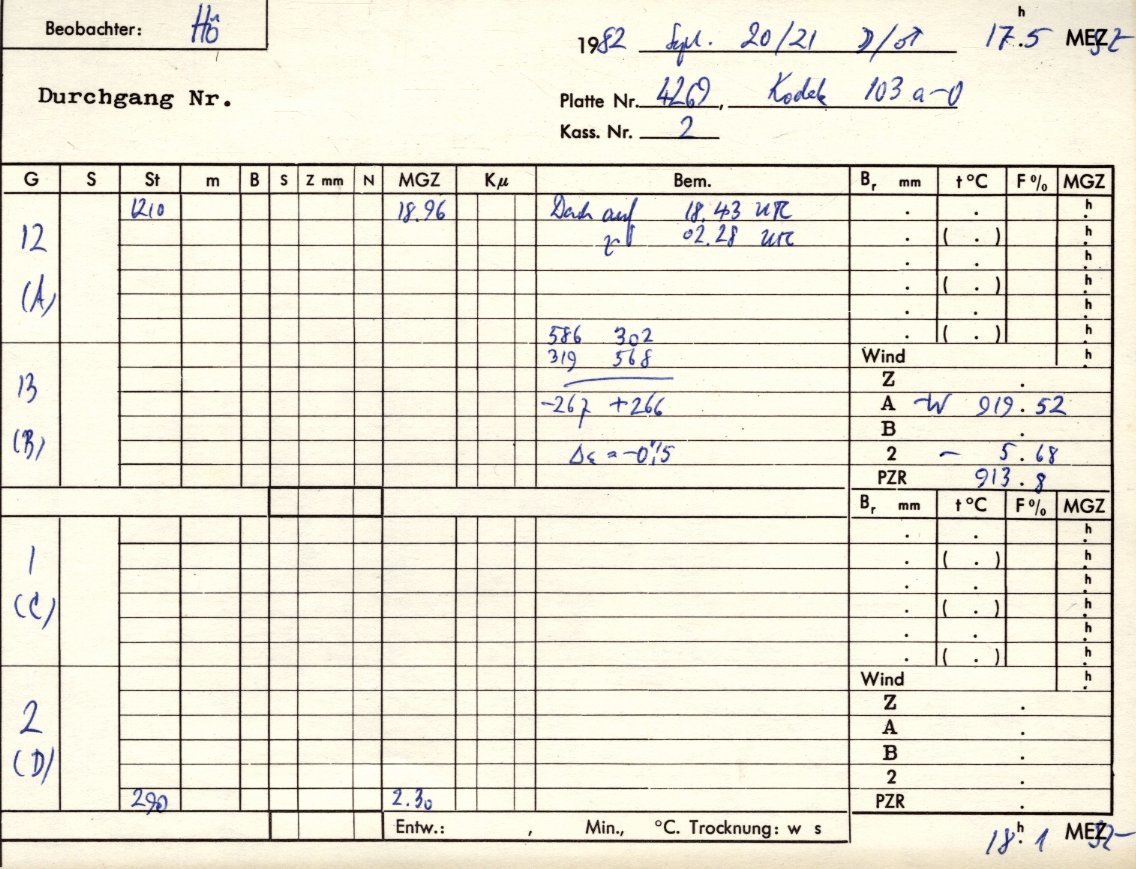 Beobachter: Hö
1982 Sept. 20/21 17h.5 MEZ
Durchgang Nr.
Platte Nr. 4269, Kodak 103 a-0
Kass. Nr. 2
G S St m B S Z mm N MGZ Kμ Bem. Br mm t°C F% MGZ
1210 18.96 Dach auf 18.43 UTC . . h.
12 02.28 UTC . ( . ) h.
. . h.
(A) . ( . ) h.
. . h.
586 302 . ( . ) h.
319 568 Wind h.
13 Z .
-267 +266 A W 919.52
(B) B .
Δε = -0",5 2 - 5.68
PZR 913.8
Br mm t°C F% MGZ
. . h.
1 . ( . ) h.
. . h.
(C) . ( . ) h.
. . h.
. ( . ) h.
Wind h.
2 Z .
A .
(D) B .
2 .
290 2.30 PZR .
Entw.: , Min., °C. Trocknung: w s
18h.1 MEZ